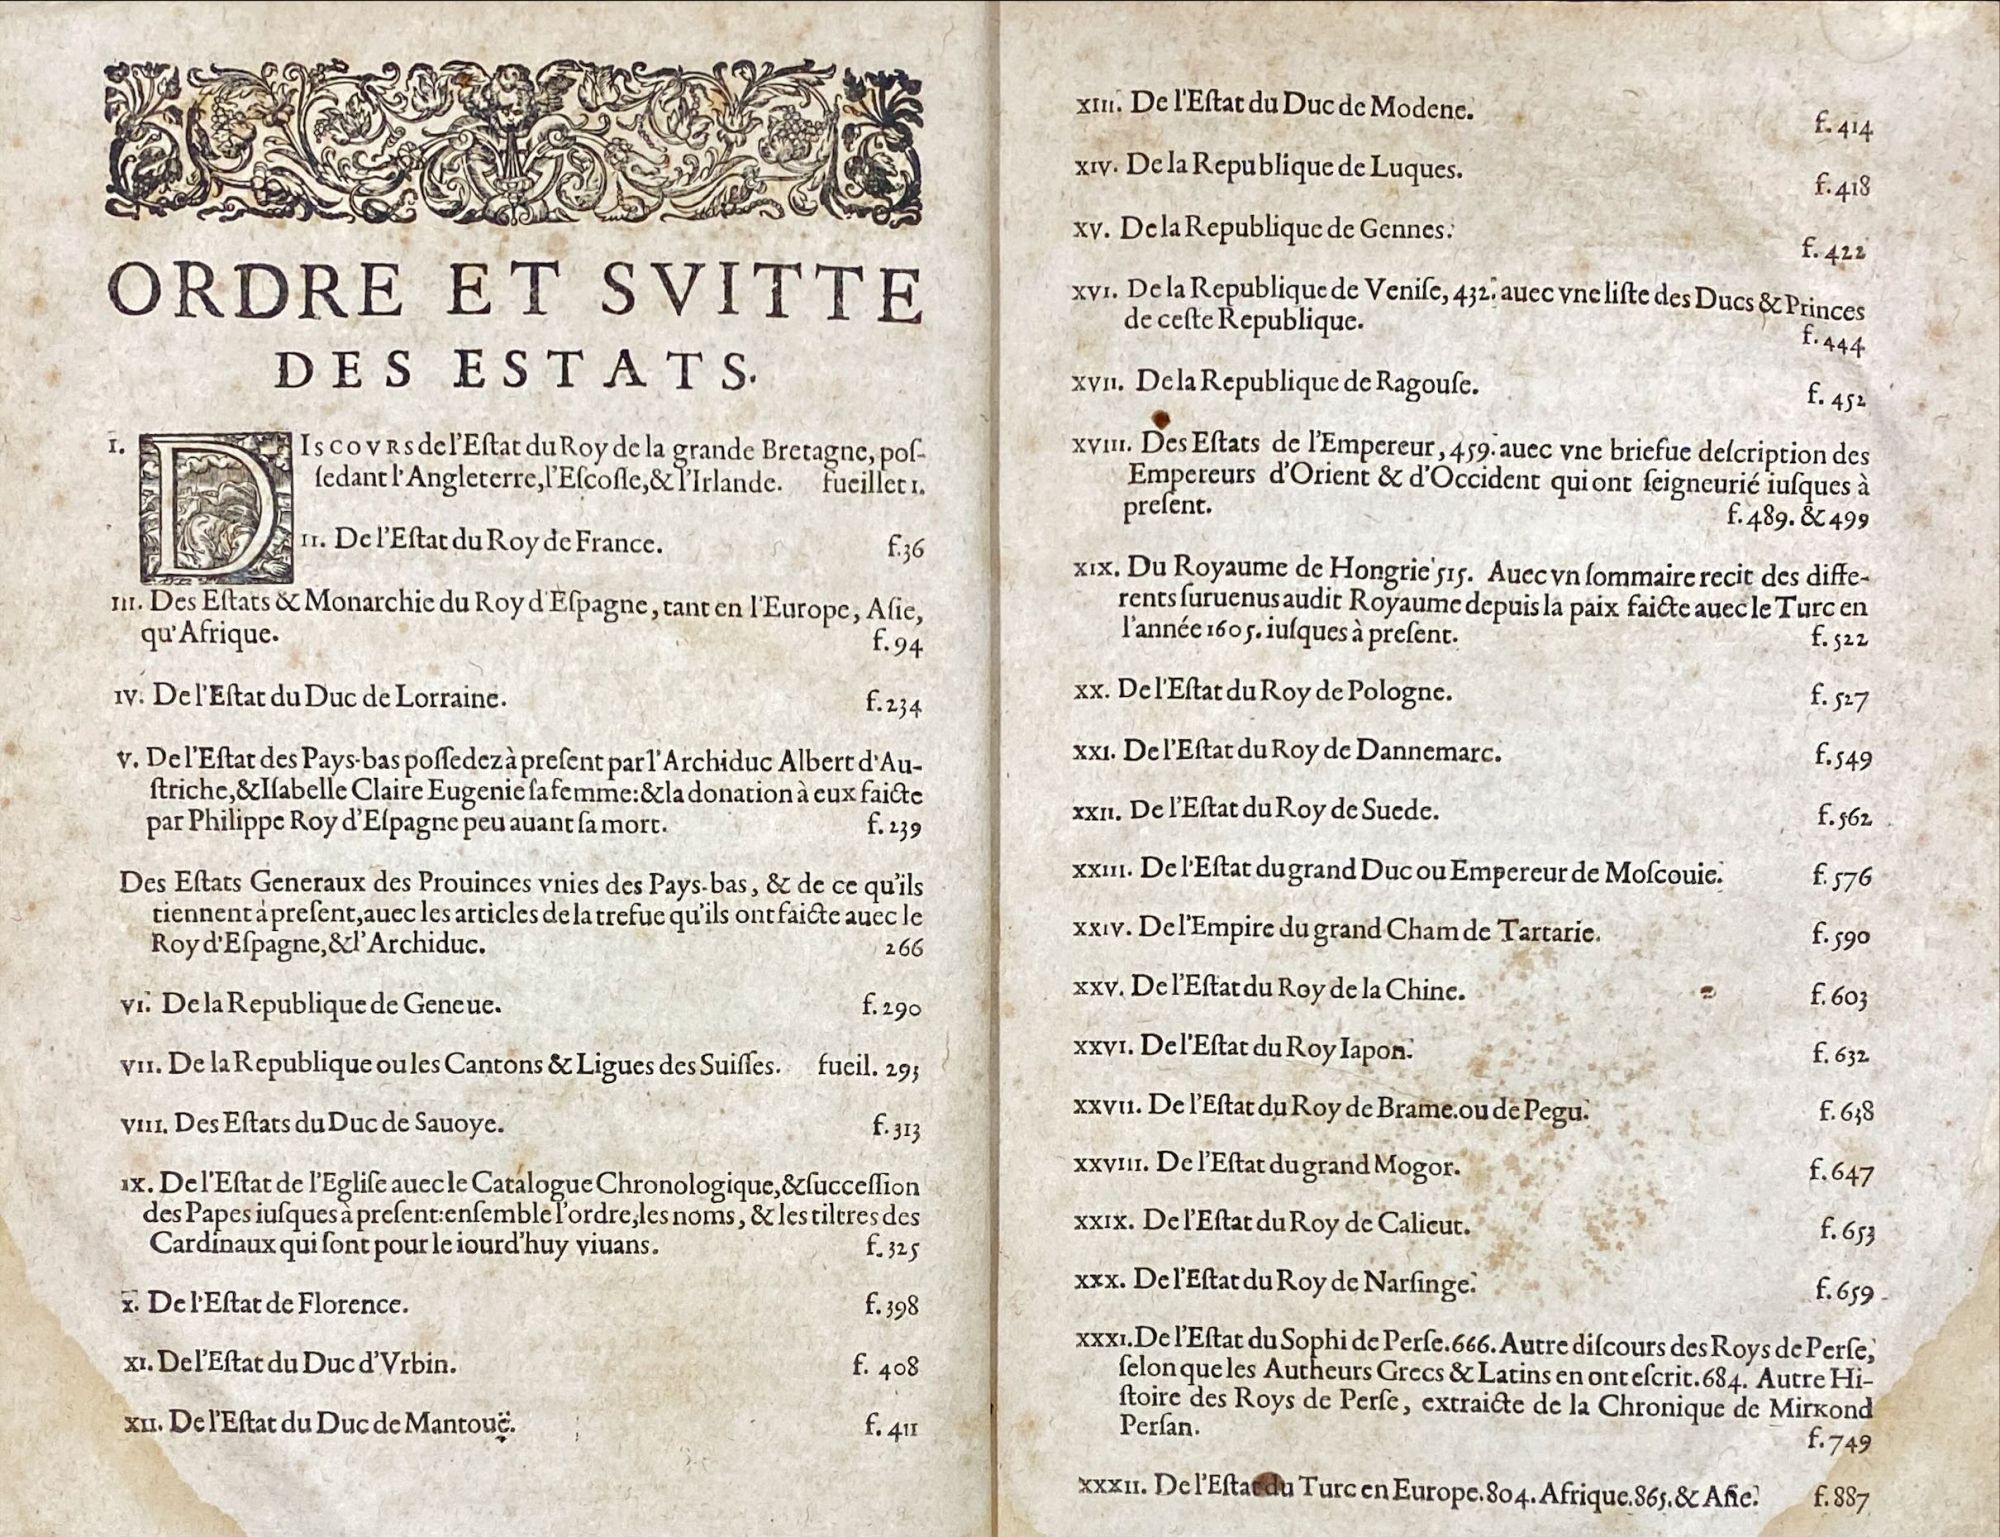 ORDRE ET SVITTE
DES ESTATS.
I. DIſcovrs de l'Eſtat du Roy de la grande Bretagne, poſ-
ſedant l'Angleterre, l'Eſcoſſe, & l'Irlande. fueillet 1.
II. De l'Eſtat du Roy de France. f.36
III. Des Eſtats & Monarchie du Roy d'Eſpagne, tant en l'Europe, Aſie,
qu'Afrique. f.94
IV. De l'Eſtat du Duc de Lorraine. f.234
V. De l'Eſtat des Pays-bas poſſedez à preſent par l'Archiduc Albert d'Au-
ſtriche, & Iſabelle Claire Eugenie ſa femme: & la donation à eux faicte
par Philippe Roy d'Eſpagne peu auant ſa mort. f.239
Des Eſtats Generaux des Prouinces vnies des Pays-bas, & de ce qu'ils
tiennent à preſent, auec les articles de la trefue qu'ils ont faicte auec le
Roy d'Eſpagne, & l'Archiduc. 266
VI. De la Republique de Geneue. f.290
VII. De la Republique ou les Cantons & Ligues des Suiſſes. fueil. 293
VIII. Des Eſtats du Duc de Sauoye. f.313
IX. De l'Eſtat de l'Egliſe auec le Catalogue Chronologique, & ſucceſſion
des Papes iuſques à preſent: enſemble l'ordre, les noms, & les tiltres des
Cardinaux qui ſont pour le iourd'huy viuans. f.325
X. De l'Eſtat de Florence. f.398
XI. De l'Eſtat du Duc d'Vrbin. f. 408
XII. De l'Eſtat du Duc de Mantouë. f. 411
XIII. De l'Eſtat du Duc de Modene. f. 414
XIV. De la Republique de Luques. f. 418
XV. De la Republique de Gennes. f. 422
XVI. De la Republique de Veniſe, 432. auec vne liſte des Ducs & Princes
de ceſte Republique. f. 444
XVII. De la Republique de Ragouſe. f. 452
XVIII. Des Eſtats de l'Empereur, 459. auec vne briefue deſcription des
Empereurs d'Orient & d'Occident qui ont ſeigneurié iuſques à
preſent. f. 489. & 499
XIX. Du Royaume de Hongrie 515. Auec vn ſommaire recit des diffe-
rents ſuruenus audit Royaume depuis la paix faicte auec le Turc en
l'année 1605. iuſques à preſent. f. 522
XX. De l'Eſtat du Roy de Pologne. f. 527
XXI. De l'Eſtat du Roy de Dannemarc. f.549
XXII. De l'Eſtat du Roy de Suede. f.562
XXIII. De l'Eſtat du grand Duc ou Empereur de Moſcouie. f. 576
XXIV. De l'Empire du grand Cham de Tartarie. f. 590
XXV. De l'Eſtat du Roy de la Chine. f. 603
XXVI. De l'Eſtat du Roy Iapon. f. 632
XXVII. De l'Eſtat du Roy de Brame. ou de Pegu. f. 638
XXVIII. De l'Eſtat du grand Mogor. f. 647
XXIX. De l'Eſtat du Roy de Calicut. f. 653
XXX. De l'Eſtat du Roy de Narſinge. f. 659
XXXI. De l'Eſtat du Sophi de Perſe. 666. Autre diſcours des Roys de Perſe,
ſelon que les Autheurs Grecs & Latins en ont eſcrit. 684. Autre Hi-
ſtoire des Roys de Perſe, extraicte de la Chronique de Mirkond
Perſan. f. 749
XXXII. De l'Eſtat du Turc en Europe. 804. Afrique. 865. & Aſie. f. 887